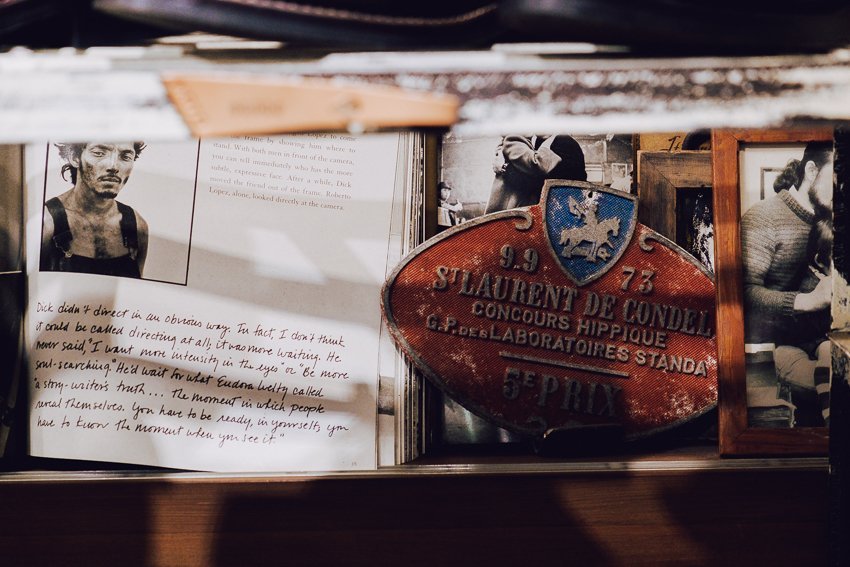 the frame by showing him where to
stand. With both men in front of the camera,
you can tell immediately who has the more
subtle, expressive face. After a while, Dick
moved the friend out of the frame. Roberto
Lopez, alone, looked directly at the camera.
Dick didn't direct in an obvious way. In fact, I don't think
it could be called directing at all, it was more waiting. He
never said, "I want more intensity in the eyes" or "Be more
soul-searching." He'd wait for what Eudora Welty called
"a story-writer's truth... the moment in which people
reveal themselves. You have to be ready, in yourself; you
have to know the moment when you see it."
9.9 73
ST LAURENT DE CONDEL
CONCOURS HIPPIQUE
G.P. DES LABORATOIRES STANDA
5E PRIX